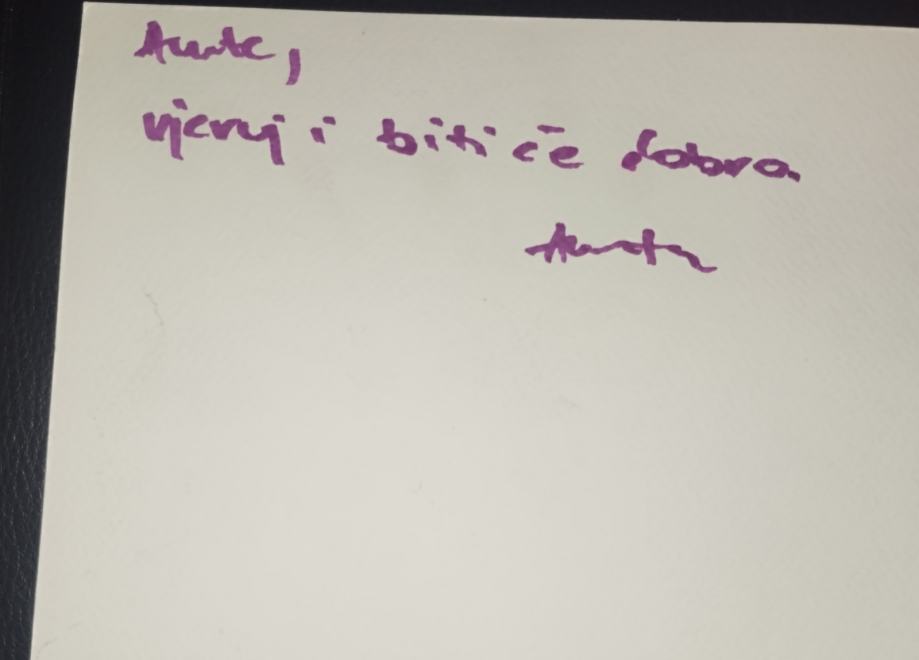 Ante,
vjeruj i biti će dobro.